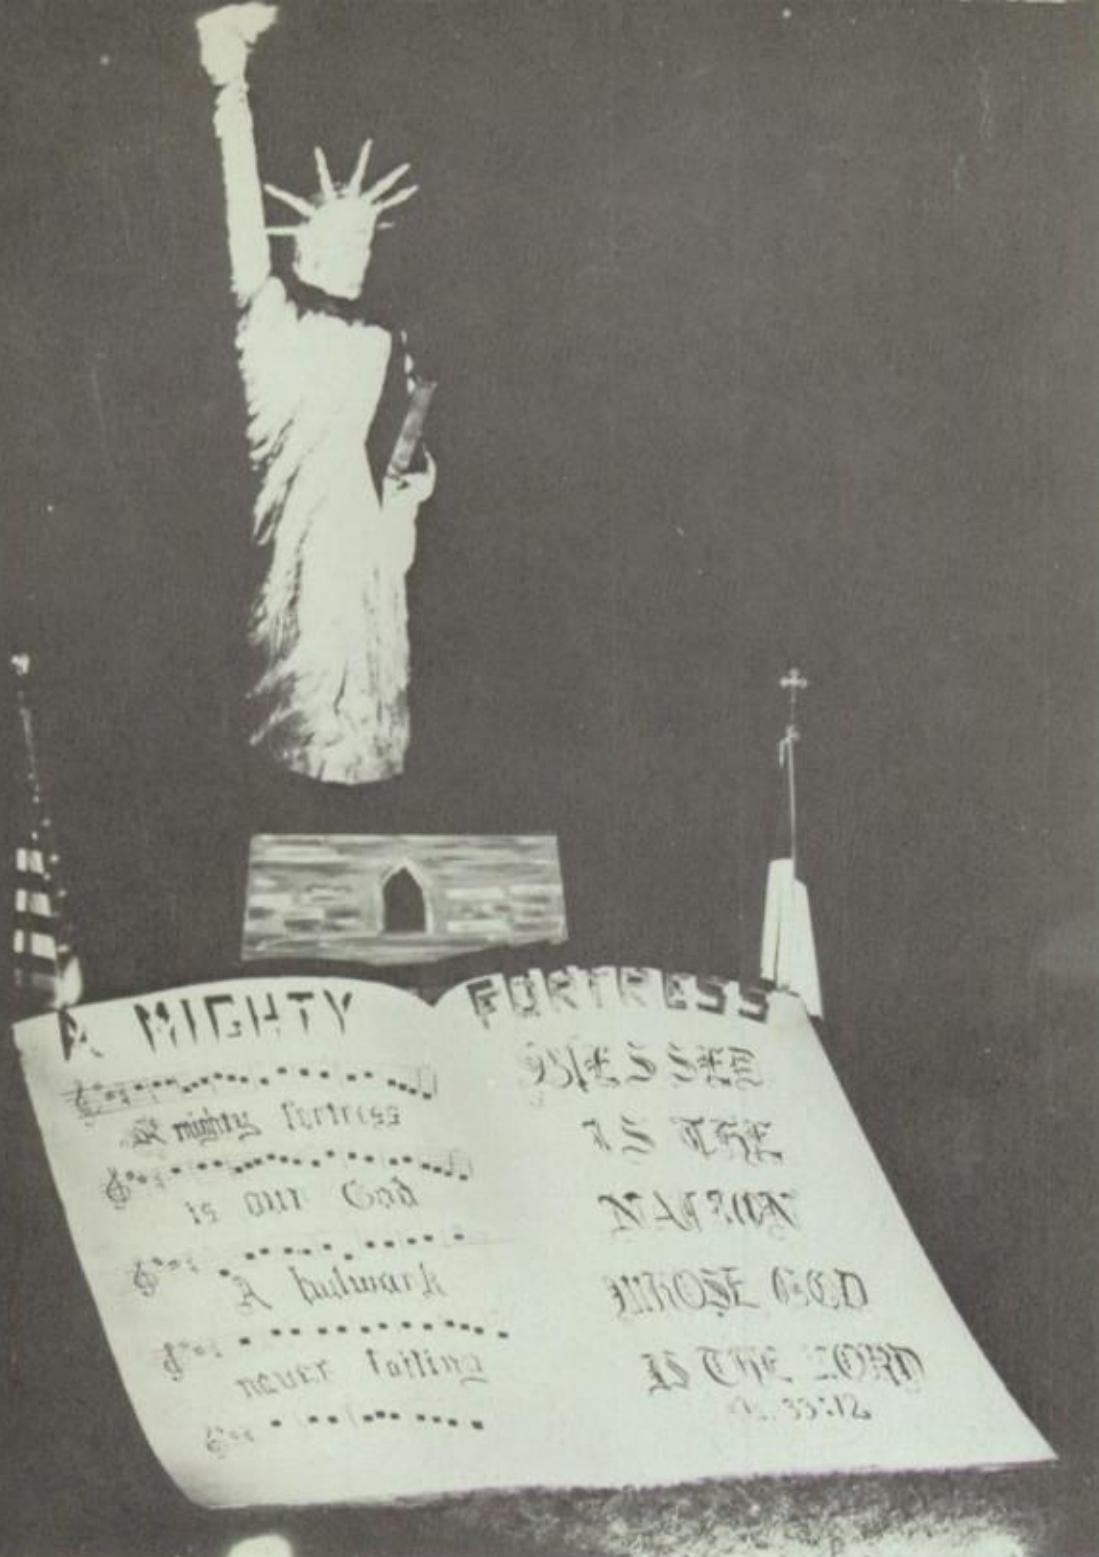 A MIGHTY FORTRESS
A mighty fortress
is our God
A bulwark
never failing
BLESSED
IS THE
NATION
WHOSE GOD
IS THE LORD
Ps. 33:12